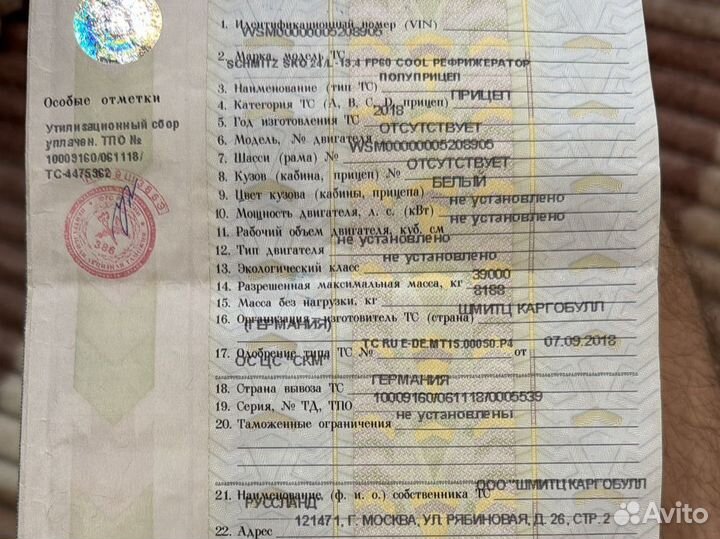 Особые отметки
Утилизационный сбор
уплачен. ТПО №
10009160/061118/
ТС-4475362
386
1. Идентификационный номер (VIN)
WSM00000005208905
2. Марка, модель ТС
SCHMITZ SKO 24/L -13.4 FP60 COOL РЕФРИЖЕРАТОР
ПОЛУПРИЦЕП
3. Наименование (тип ТС)
ПРИЦЕП
4. Категория ТС (А, В, С, D, прицеп)
2018
5. Год изготовления ТС
ОТСУТСТВУЕТ
6. Модель, № двигателя
WSM00000005208905
7. Шасси (рама) №
ОТСУТСТВУЕТ
8. Кузов (кабина, прицеп) №
БЕЛЫЙ
9. Цвет кузова (кабины, прицепа)
не установлено
10. Мощность двигателя, л. с. (кВт)
не установлено
11. Рабочий объем двигателя, куб. см
не установлено
12. Тип двигателя
не установлено
13. Экологический класс
39000
14. Разрешенная максимальная масса, кг
8188
15. Масса без нагрузки, кг
ШМИТЦ КАРГОБУЛЛ
16. Организация - изготовитель ТС (страна)
(ГЕРМАНИЯ)
ТС RU E-DE.MT15.00050.P4 07.09.2018
17. Одобрение типа ТС № от
ОС ЦС "СКМ"
18. Страна вывоза ТС
ГЕРМАНИЯ
10009160/061118/0005539
19. Серия, № ТД, ТПО
не установлены
20. Таможенные ограничения
ООО "ШМИТЦ КАРГОБУЛЛ
21. Наименование (ф. и. о.) собственника ТС
РУССЛАНД"
121471, Г. МОСКВА, УЛ. РЯБИНОВАЯ, Д. 26, СТР. 2
22. Адрес
Avito